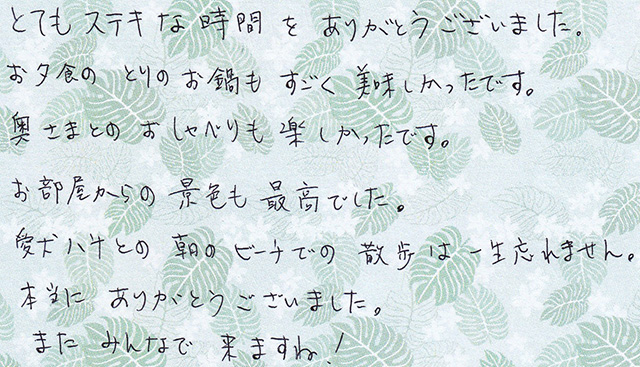 とてもステキな時間をありがとうございました。
お夕食のとりのお鍋もすごく美味しかったです。
奥さまとのおしゃべりも楽しかったです。
お部屋からの景色も最高でした。
愛犬ハチとの朝のビーチでの散歩は一生忘れません。
本当にありがとうございました。
またみんなで来ますね!